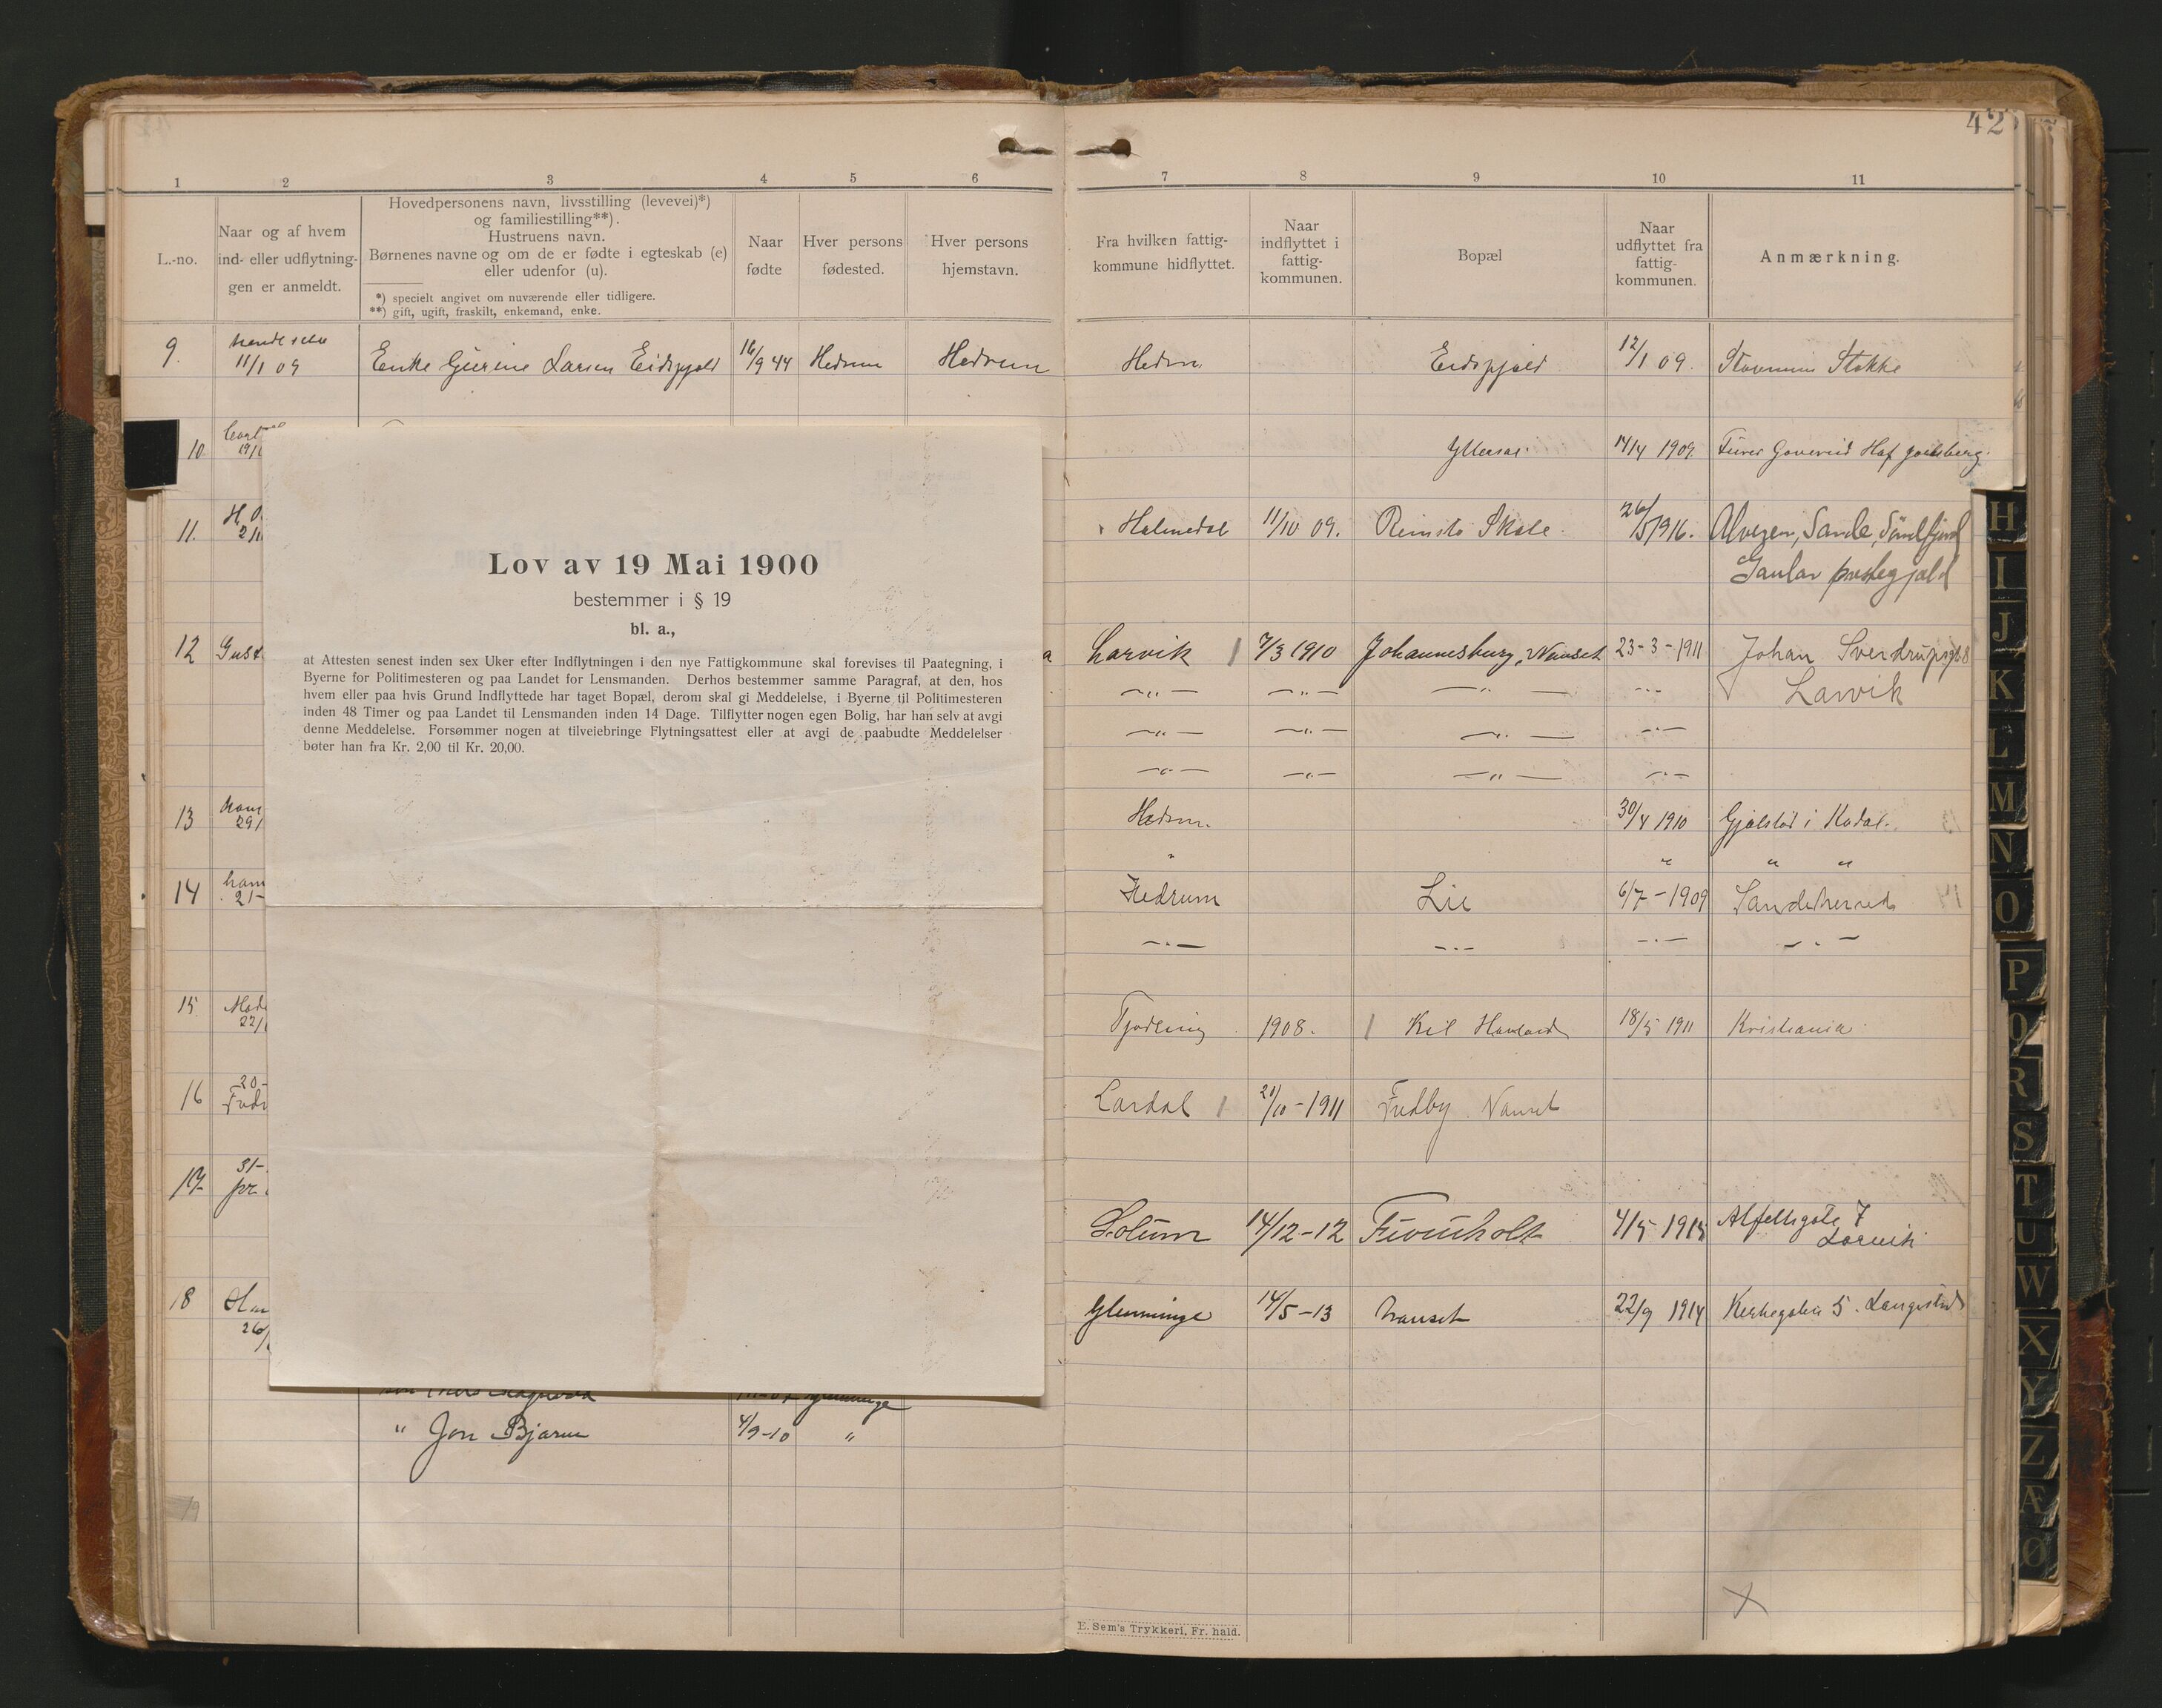 42
1 2 3 4 5 6 7 8 9 10 11
L.-no.
Naar og af hvem
ind- eller udflytnin-
gen er anmeldt.
Hovedpersonens navn, livsstilling (levevei)*)
og familiestilling**).
Hustruens navn.
Børnenes navne og om de er fødte i egteskab (e)
eller udenfor (u).
*) specielt angivet om nuværende eller tidligere.
**) gift, ugift, fraskilt, enkemand, enke.
Naar
fødte
Hver persons
fødested.
Hver persons
hjemstavn.
Fra hvilken fattig-
kommune hidflyttet.
Naar
indflyttet i
fattig-
kommunen.
Bopæl
Naar
udflyttet fra
fattig-
kommunen.
Anmærkning.
9. 11/1 09 Enke Gurine Larsen 16/9 44 Hedrum Hedrum Hedrm. 12/1 09. Stokke
10 14/4 1909
11. Holmedal 11/10 09. Skole. 26/5 1916. Sande, Søndfjord
Gaular prestegjeld
12 Larvik 7/3 1910 Johannesburg, Nanset 23-3-1911 Johan Sverdrupsgt 8
—„— —„— —„— —„— Larvik
—„— —„— —„— —„—
—„— —„— —„— —„—
13 Hedrm. 30/4 1910 i Kodal.
„ „ „ „
14 21- Hedrum Lie 6/7-1909 Sandeherred
—„— —„— —„— —„—
15 Tjødling 1908. 18/5 1911 Kristiania
16 20- Lardal 21/10-1911 Fredby Nanset
17 31-
Solum 14/12-12 Furuholt 4/5 1915 7
Larvik
18 Glemminge 14/5-13 Nanset 22/9 1914 Kirkegaten 5. Langestrand
" Jon Bjarne 4/9-10 "
19
Lov av 19 Mai 1900
bestemmer i § 19
bl. a.,
at Attesten senest inden sex Uker efter Indflytningen i den nye Fattigkommune skal forevises til Paategning, i
Byerne for Politimesteren og paa Landet for Lensmanden. Derhos bestemmer samme Paragraf, at den, hos
hvem eller paa hvis Grund Indflyttede har taget Bopæl, derom skal gi Meddelelse, i Byerne til Politimesteren
inden 48 Timer og paa Landet til Lensmanden inden 14 Dage. Tilflytter nogen egen Bolig, har han selv at avgi
denne Meddelelse. Forsømmer nogen at tilveiebringe Flytningsattest eller at avgi de paabudte Meddelelser
bøter han fra Kr. 2,00 til Kr. 20,00.
E. Sem's Trykkeri, Fr. hald.
H
I
J
K
L
M
N
O
P
Q
R
S
T
U
W
X
Y
Z
Æ
Ø